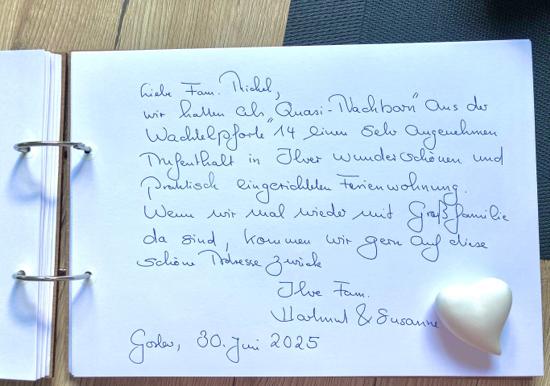 Liebe Fam. Michel,
wir hatten als "Quasi-Nachbarn" aus der
Wachtelpforte 14 einen sehr angenehmen
Aufenthalt in Ihrer wunderschönen und
praktisch eingerichteten Ferienwohnung.
Wenn wir mal wieder mit Großfamilie
da sind, kommen wir gern auf diese
schöne Adresse zurück
Ihre Fam.
Hartmut & Susanne
Goslar, 30. Juni 2025